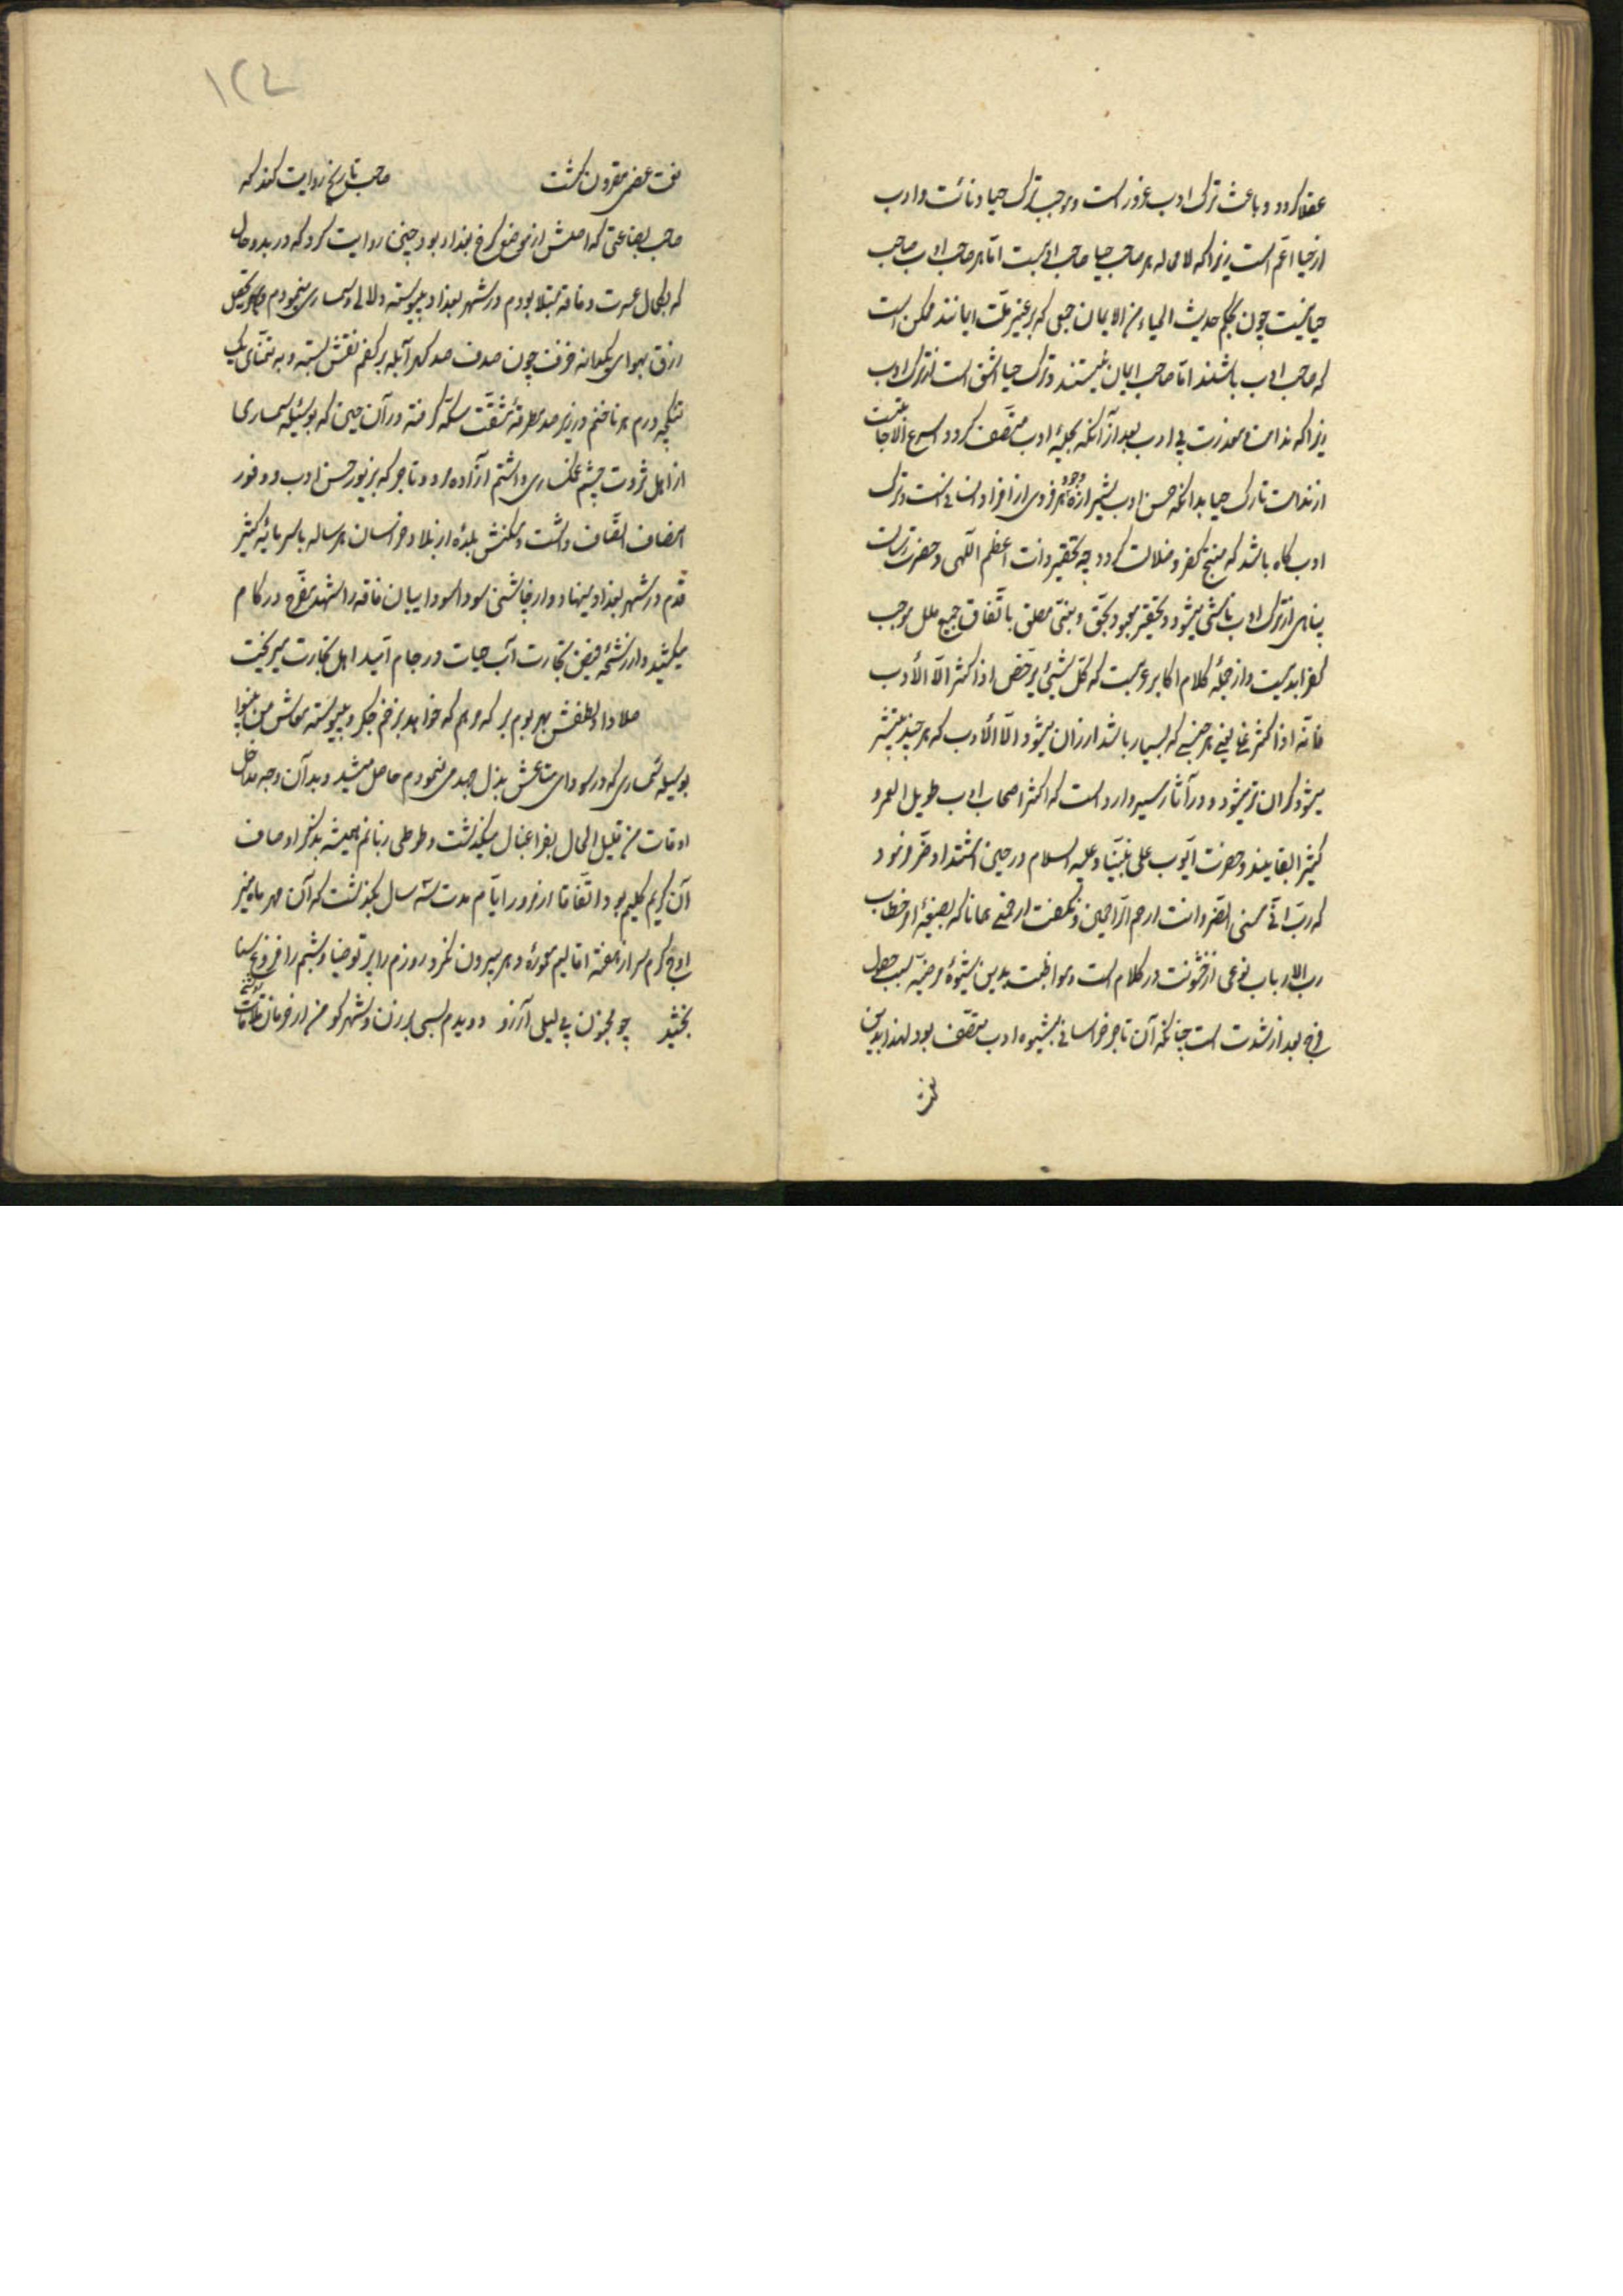 عقلا کردد و باعث ترک ادب غرور است و موجب ترک حیا دنائت و ادب
از حیا اعم است زیرا که لا محاله هر صاحب حیا صاحب ادبست اما هر صاحب ادب صاحب
حیا نیست چون بحکم حدیث الحیاء من الایمان جمعی که بر غیر ملت ایمانند ممکن است
که صاحب ادب باشند اما صاحب ایمان نیستند و ترک حیا اشق است از ترک ادب
زیرا که ندامت و معذرت بی ادب بعد از آنکه بحلیهٔ ادب متصف کردد اسرع الاجابت
از ندامت تارک حیا بدانکه حسن ادب وجود هر فردی از افراد انسانی است و ترک
ادب کاه باشد که منتج کفر و ضلالت کردد چه تحقیر ذات اعظم الهی و حضرت رسالت
پناهی از ترک ادب ناشی میشود و تحقیر معبود بحق و نبی مطلق باتفاق جمیع ملل موجب
کفر ابدیست و از جملهٔ کلام اکابر عربست که کل شیئ یرخص اذا کثر الا الأدب
فانه اذا کثر غلا یعنی هر جنسی که بسیار باشد ارزان میشود الا الأدب که هر چند بیشتر
میشود کران تر میشود و در آثار سیر وارد است که اکثر اصحاب ادب طویل العمر و
کثیر البقایند و حضرت ایوب علی نبینا و علیه السلام در حین اشتداد ضر فرمود
که رب انی مسنی الضر و انت ارحم الراحمین و نگفت ارحمنی همانا که بصیغهٔ امر خطاب
رب الارباب نوعی از خشونت در کلام است و مواظبت بدین شیوهٔ مرضیه سبب حصول
فرج بعد از شدت است چنانکه آن تاجر خراسانی بشیوه ادب متصف بود لهذا بدین
نعمت
۱۲۴
نعمت عظمی مقرون کشت صاحب تاریخ روایت کند که
صاحب بضاعتی که اصلش از موضع کرخ بغداد بود چنین روایت کرد که در بدو حال
که بکمال عسرت و فاقه مبتلا بودم در شهر بغداد پیوسته دلالی و سمساری مینمودم و بتحصیل
رزق بهوای یکدانه خزف چون صدف صد کهر آبله بر کفم نقش بسته و به تمنای یک
تنکچه درم هر ناخنم در زیر صد مطرقهٔ مشقت سکه کرفته در آن حین که بوسیلهٔ سمساری
از اهل ثروت چشم غمکساری داشتم آزاده مرد و تاجر که بزیور حسن ادب و وفور
انصاف اتصاف داشت و مسکنش بلدهٔ از بلاد خراسان هر ساله با سرمایهٔ کثیر
قدم در شهر بغداد مینهاد و از چاشنی سود سودائیان فاقه را شهد مفرح در کام
میکشید و از رشحهٔ فیض تجارت آب حیات در جام امید اهل تجارت میریخت
صلا داد لطفش بهر بوم و بر که مرهم که خواهد بزخم جکر و پیوسته معاش من بینوا
بوسیلهٔ سمساری که در سودای متاعش بذل جهد می نمودم حاصل میشد و بدان وجه مداخل
اوقات من قلیل المال بفراغبال میکذشت و طوطی زبانم همیشه بذکر اوصاف
آن کریم کلیم بود اتفاقا از مرور ایام مدت سه سال بکذشت که آن مهر ماه منیر
اوج کرم سر از هفته اقالیم معموره و هر بیرون نکرد و روزم را پرتو ضیا و شبم را فروغ سنا
نبخشید چو مجنون پی لیلی آرزو دویدم بسی برزن و شهر و کو من از حرمان ملاقات